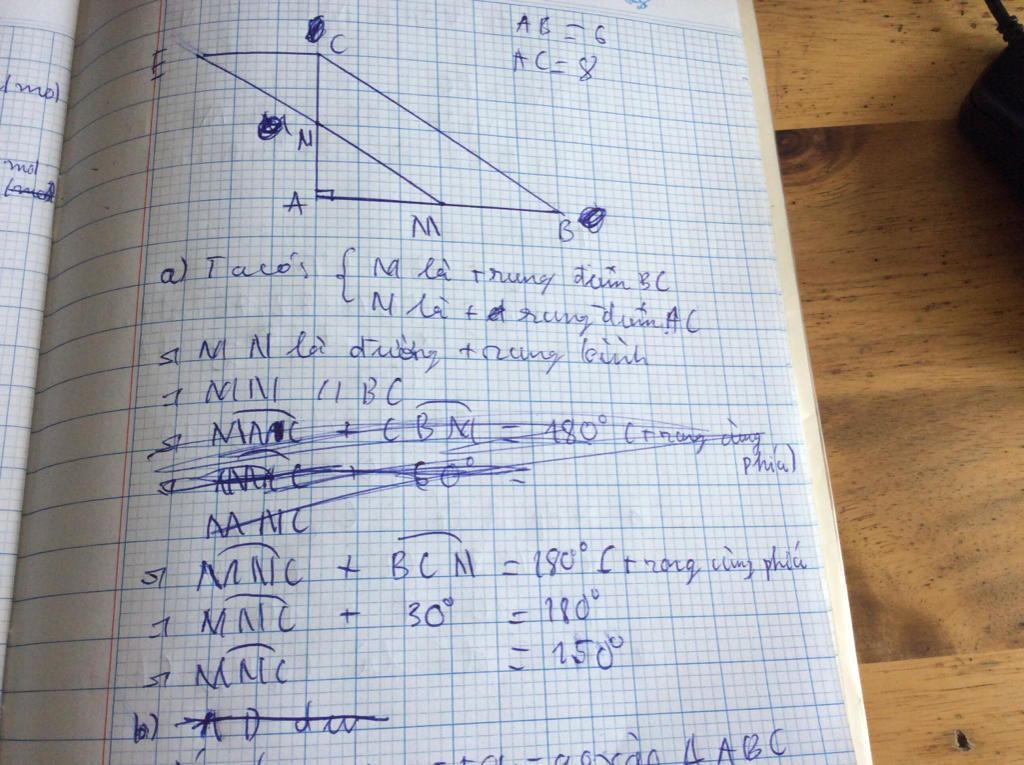 AB = 6
AC = 8
E
C
N
A
M
B
(mol
mol
a) Ta có: { M là trung điểm BC
N là trung điểm AC
=> MN là đường trung bình
=> MN // BC
=> MNC + CBM = 180° (trong cùng phía)
60° =
=> MNC + BCN = 180° (trong cùng phía
=> MNC + 30° = 180°
=> MNC = 150°
b)
ABC